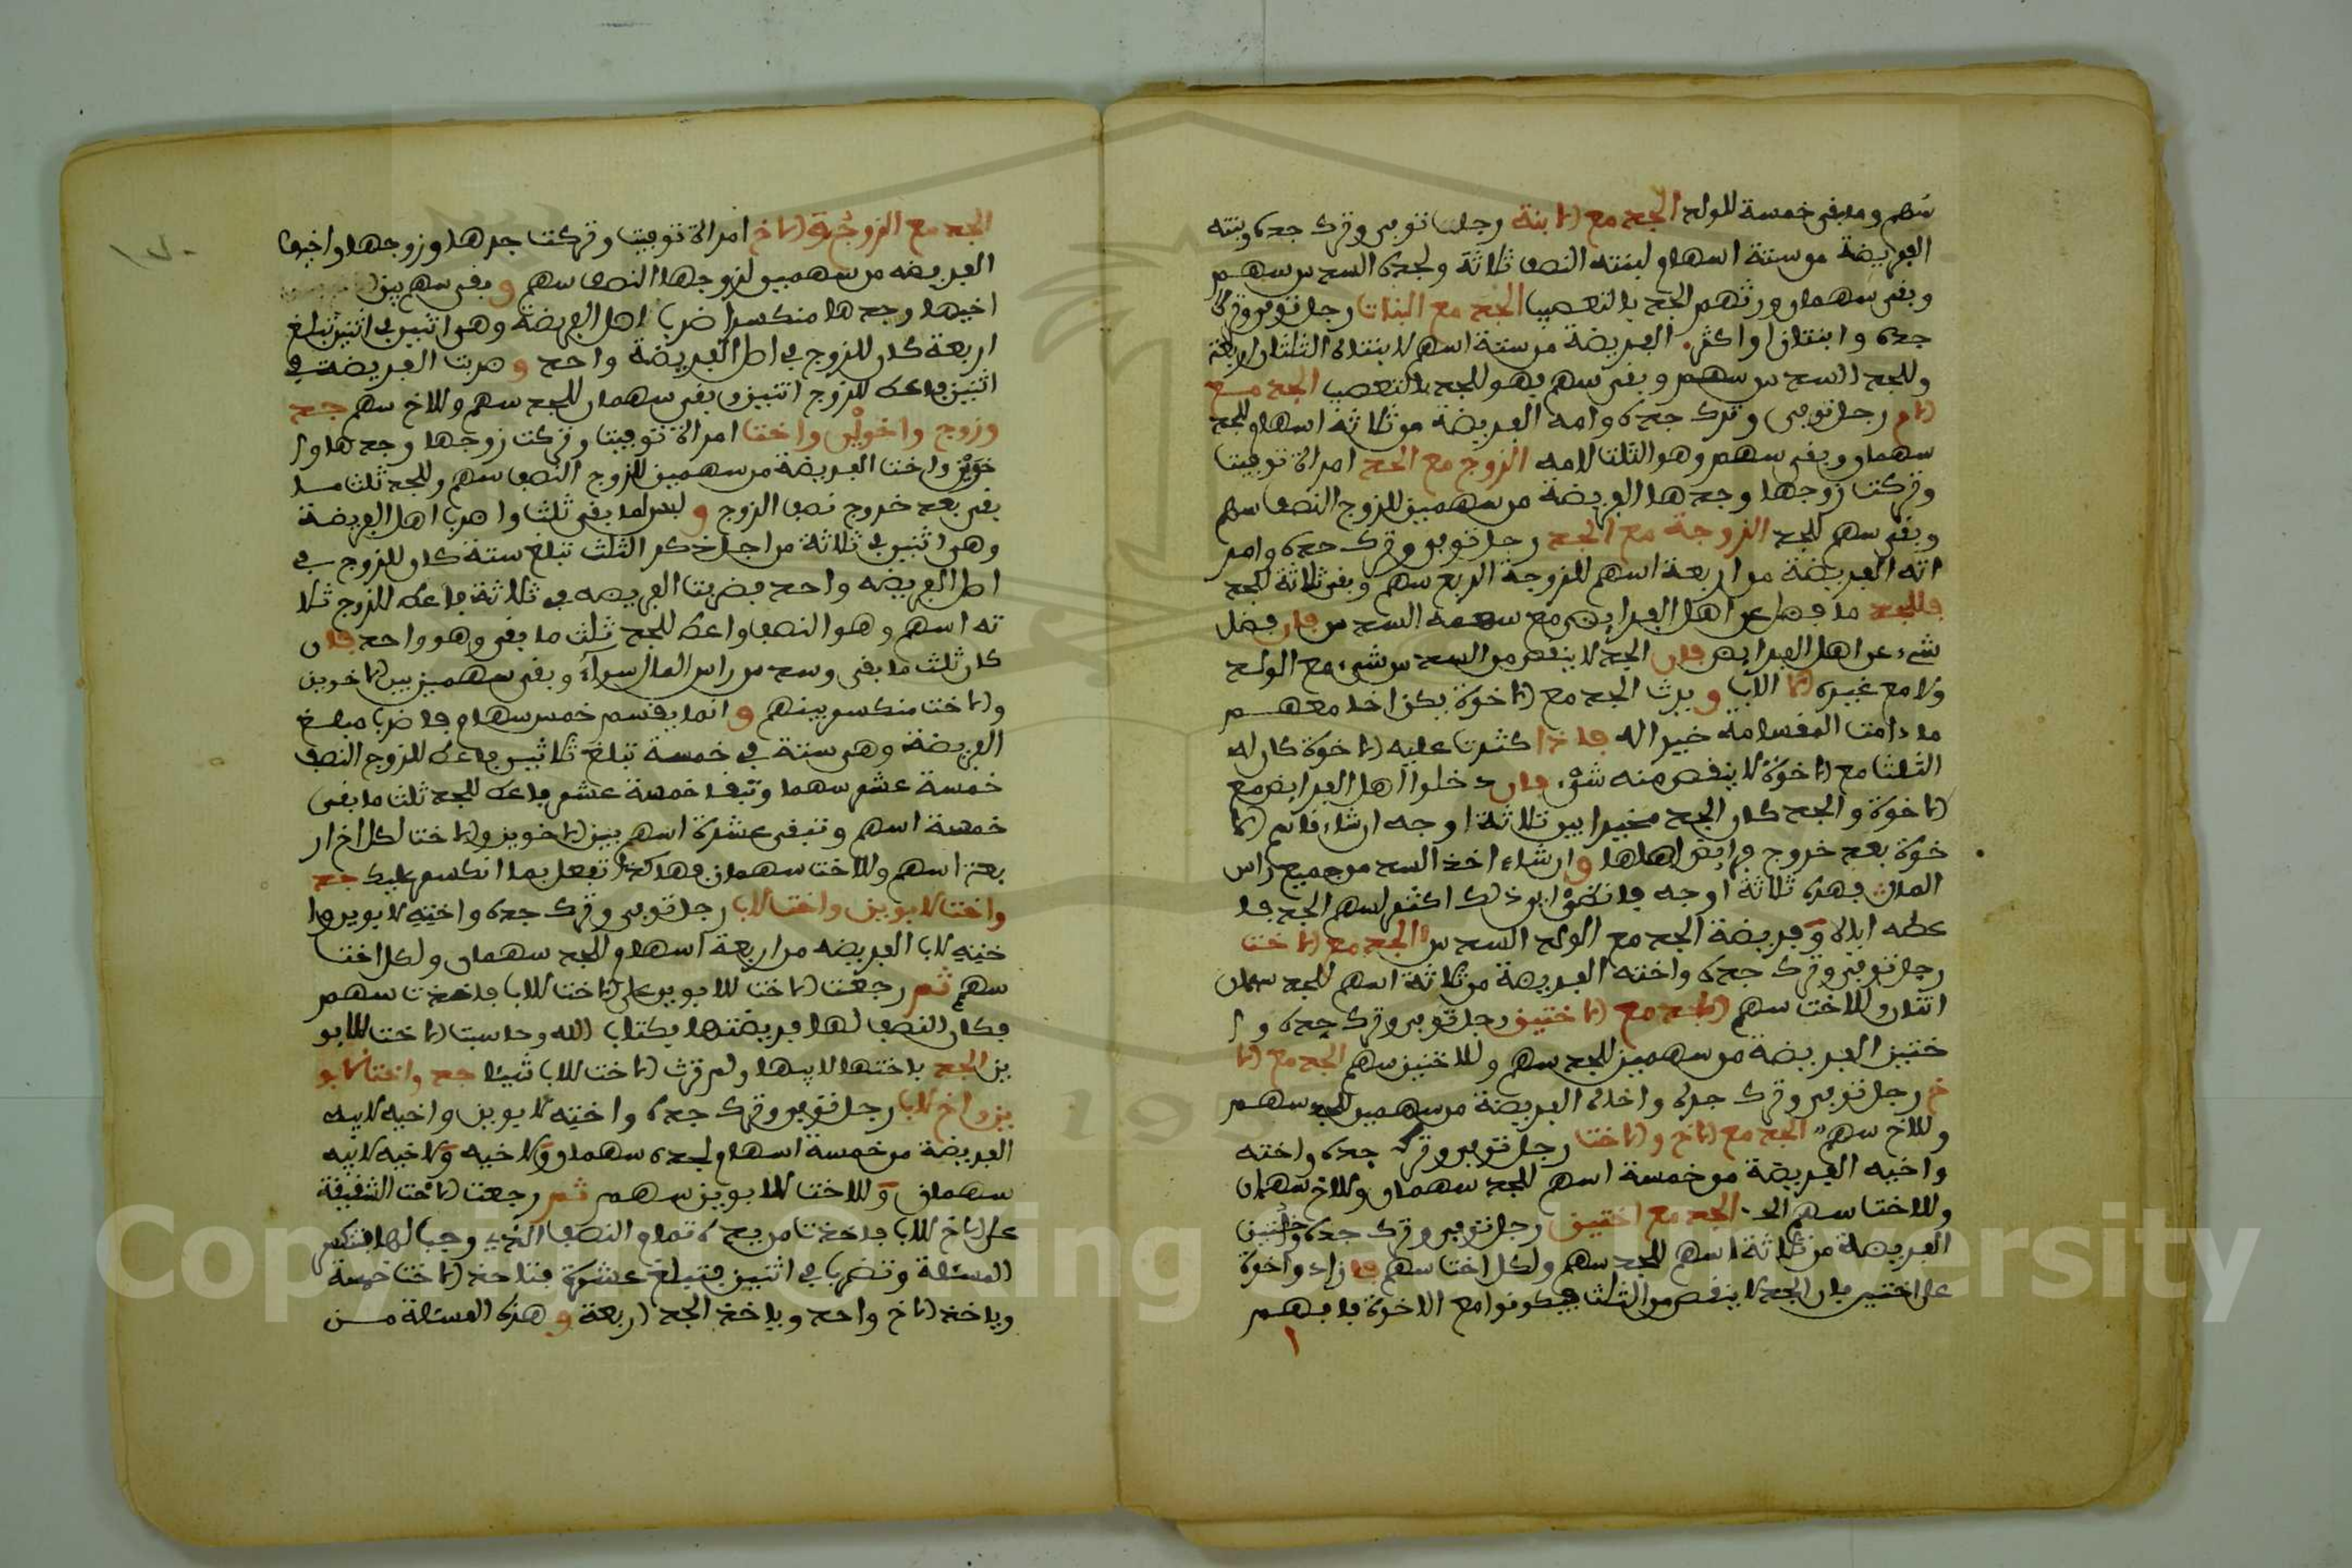 سهم وما بقى خمسة للولد الجد مع الابنة رجل توفى وترك جده وبنته
الفريضة من ستة اسهام لبنته النصف ثلاثة ولجده السدس سهم
وبقى سهمان ورثهم الجد بالتعصيب الجد مع البنات رجل توفى وترك
جده وابنتان او اكثر الفريضة من ستة اسهم لابنتاه الثلثان اربعة
وللجد السدس سهم وبقى سهم فهو للجد بالتعصيب الجد مع
الام رجل توفى وترك جده وامه الفريضة من ثلاثة اسهام للجد
سهمان وبقى سهم وهو الثلث لامه الزوج مع الجد امراة توفيت
وتركت زوجها وجدها الفريضة من سهمين للزوج النصف سهم
وبقى سهم للجد الزوجة مع الجد رجل توفى وترك جده وامر
اته الفريضة من اربعة اسهم للزوجة الربع سهم وبقى ثلاثة للجد
فللجد ما فضل عن اهل الفرايض مع سهمه السدس فان فضل
شىء عن اهل الفرايض فان الجد لا ينقص من السدس شىء مع الولد
ولا مع غيره الا الاب ويرث الجد مع الاخوة يكن اخا معهم
ما دامت المقسامة خير اله فاذا كثرت عليه الاخوة كان له
الثلث مع الاخوة لا ينقص منه شىء فان دخلوا اهل الفرايض مع
الاخوة والجد كان الجد مخيرا بين ثلاثة اوجه ان شاء قاسم الا
خوة بعد خروج فرايض اهلها وان شاء اخذ السدس من جميع راس
المال فهذه ثلاثة اوجه فانظر اى ذلك اكثر لسهم الجد فا
عطه اياه وفريضة الجد مع الولد السدس الجد مع الاخت
رجل توفى وترك جده واخته الفريضة من ثلاثة اسهم للجد سهمان
اثنان وللاخت سهم الجد مع الاختين رجل توفى وترك جده وا
ختين الفريضة من سهمين للجد سهم وللاختين سهم الجد مع الا
خ رجل توفى وترك جده واخاه الفريضة من سهمين للجد سهم
وللاخ سهم الجد مع الاخ والاخت رجل توفى وترك جده واخته
واخيه الفريضة من خمسة اسهم للجد سهمان وللاخ سهمان
وللاخت سهم الجد مع اختين رجل توفى وترك جده واختين
الفريضة من ثلاثة اسهم للجد سهم ولكل اخت سهم فان زاد واخوة
على اختين فان الجد لا ينقص من الثلث فيكونوا مع الاخوة فافهم
الجد مع الزوج والاخ امراة توفيت وتركت جدها وزوجها واخيها
الفريضه من سهمين لزوجها النصف سهم وبقى سهم بين
اخيها وجدها منكسرا ضرب اهل الفريضة وهو اثنين فى اثنين تبلغ
اربعة كان للزوج فى اصل الفريضة واحد وضربت الفريضة فى
اثنين فاعط للزوج اثنين وبقى سهمان للجد سهم وللاخ سهم جد
وزوج واخوين واخت امراة توفيت وتركت زوجها وجدها وا
خوين واخت الفريضة من سهمين للزوج النصف سهم وللجد ثلث ما
بقى بعد خروج نصف الزوج وليس لما بقى ثلث واضرب اهل الفريضة
وهو اثنين فى ثلاثة من اجل ذكر الثلث تبلغ ستة كان للزوج فى
اصل الفريضه واحد فضربت الفريضه فى ثلاثة فاعط للزوج ثلا
ثه اسهم وهو النصف واعط للجد ثلث ما بقى وهو واحد فان
كان ثلث ما بقى وسدس راس المال سواء وبقى سهمين بين الاخوين
والاخت منكسر بينهم وانما يقسم خمس سهام فاضرب مبلغ
الفريضة وهى ستة فى خمسة تبلغ ثلاثين فاعط للزوج النصف
خمسة عشر سهما وتبقا خمسة عشر فاعط للجد ثلث ما بقى
خمسة اسهم وتبقى عشرة اسهم بين الاخوين والاخت لكل اخ ار
بعة اسهم وللاخت سهمان فهاكذا تفعل بما انكسر عليك جد
واخت لابوين واخت لاب رجل توفى وترك جده واخته لابوين وا
خته لاب الفريضه من اربعة اسهام للجد سهمان ولكل اخت
سهم ثم رجعت الاخت للابوين على الاخت للاب فاخذت سهم
فكان النصف لها فريضتها بكتاب الله وحاسبت الاخت للابو
ين الجد باختها لابيها ولم ترث الاخت للاب شيئا جد واخت لابو
ين واخ لاب رجل توفى وترك جده واخته لابوين واخيه لابيه
الفريضة من خمسة اسهام لجده سهمان ولاخيه ولاخيه لابيه
سهمان وللاخت للابوين سهم ثم رجعت الاخت الشقيقة
على الاخ للاب فاخذت من يده تمام النصف الذى وجب لها فتنكسر
المسئلة وتضرب فى اثنين فتبلغ عشرة فتاخذ الاخت خمسة
وياخذ الاخ واحد وياخذ الجد اربعة وهذه المسئلة من
Copyright © King Saud University
1957